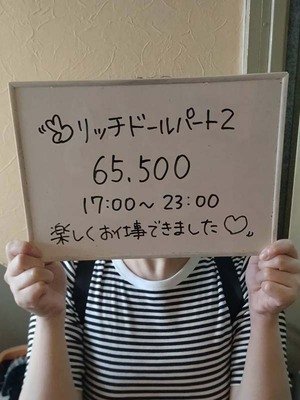 リッチドールパート2
65.500
17:00〜23:00
楽しくお仕事できました♡